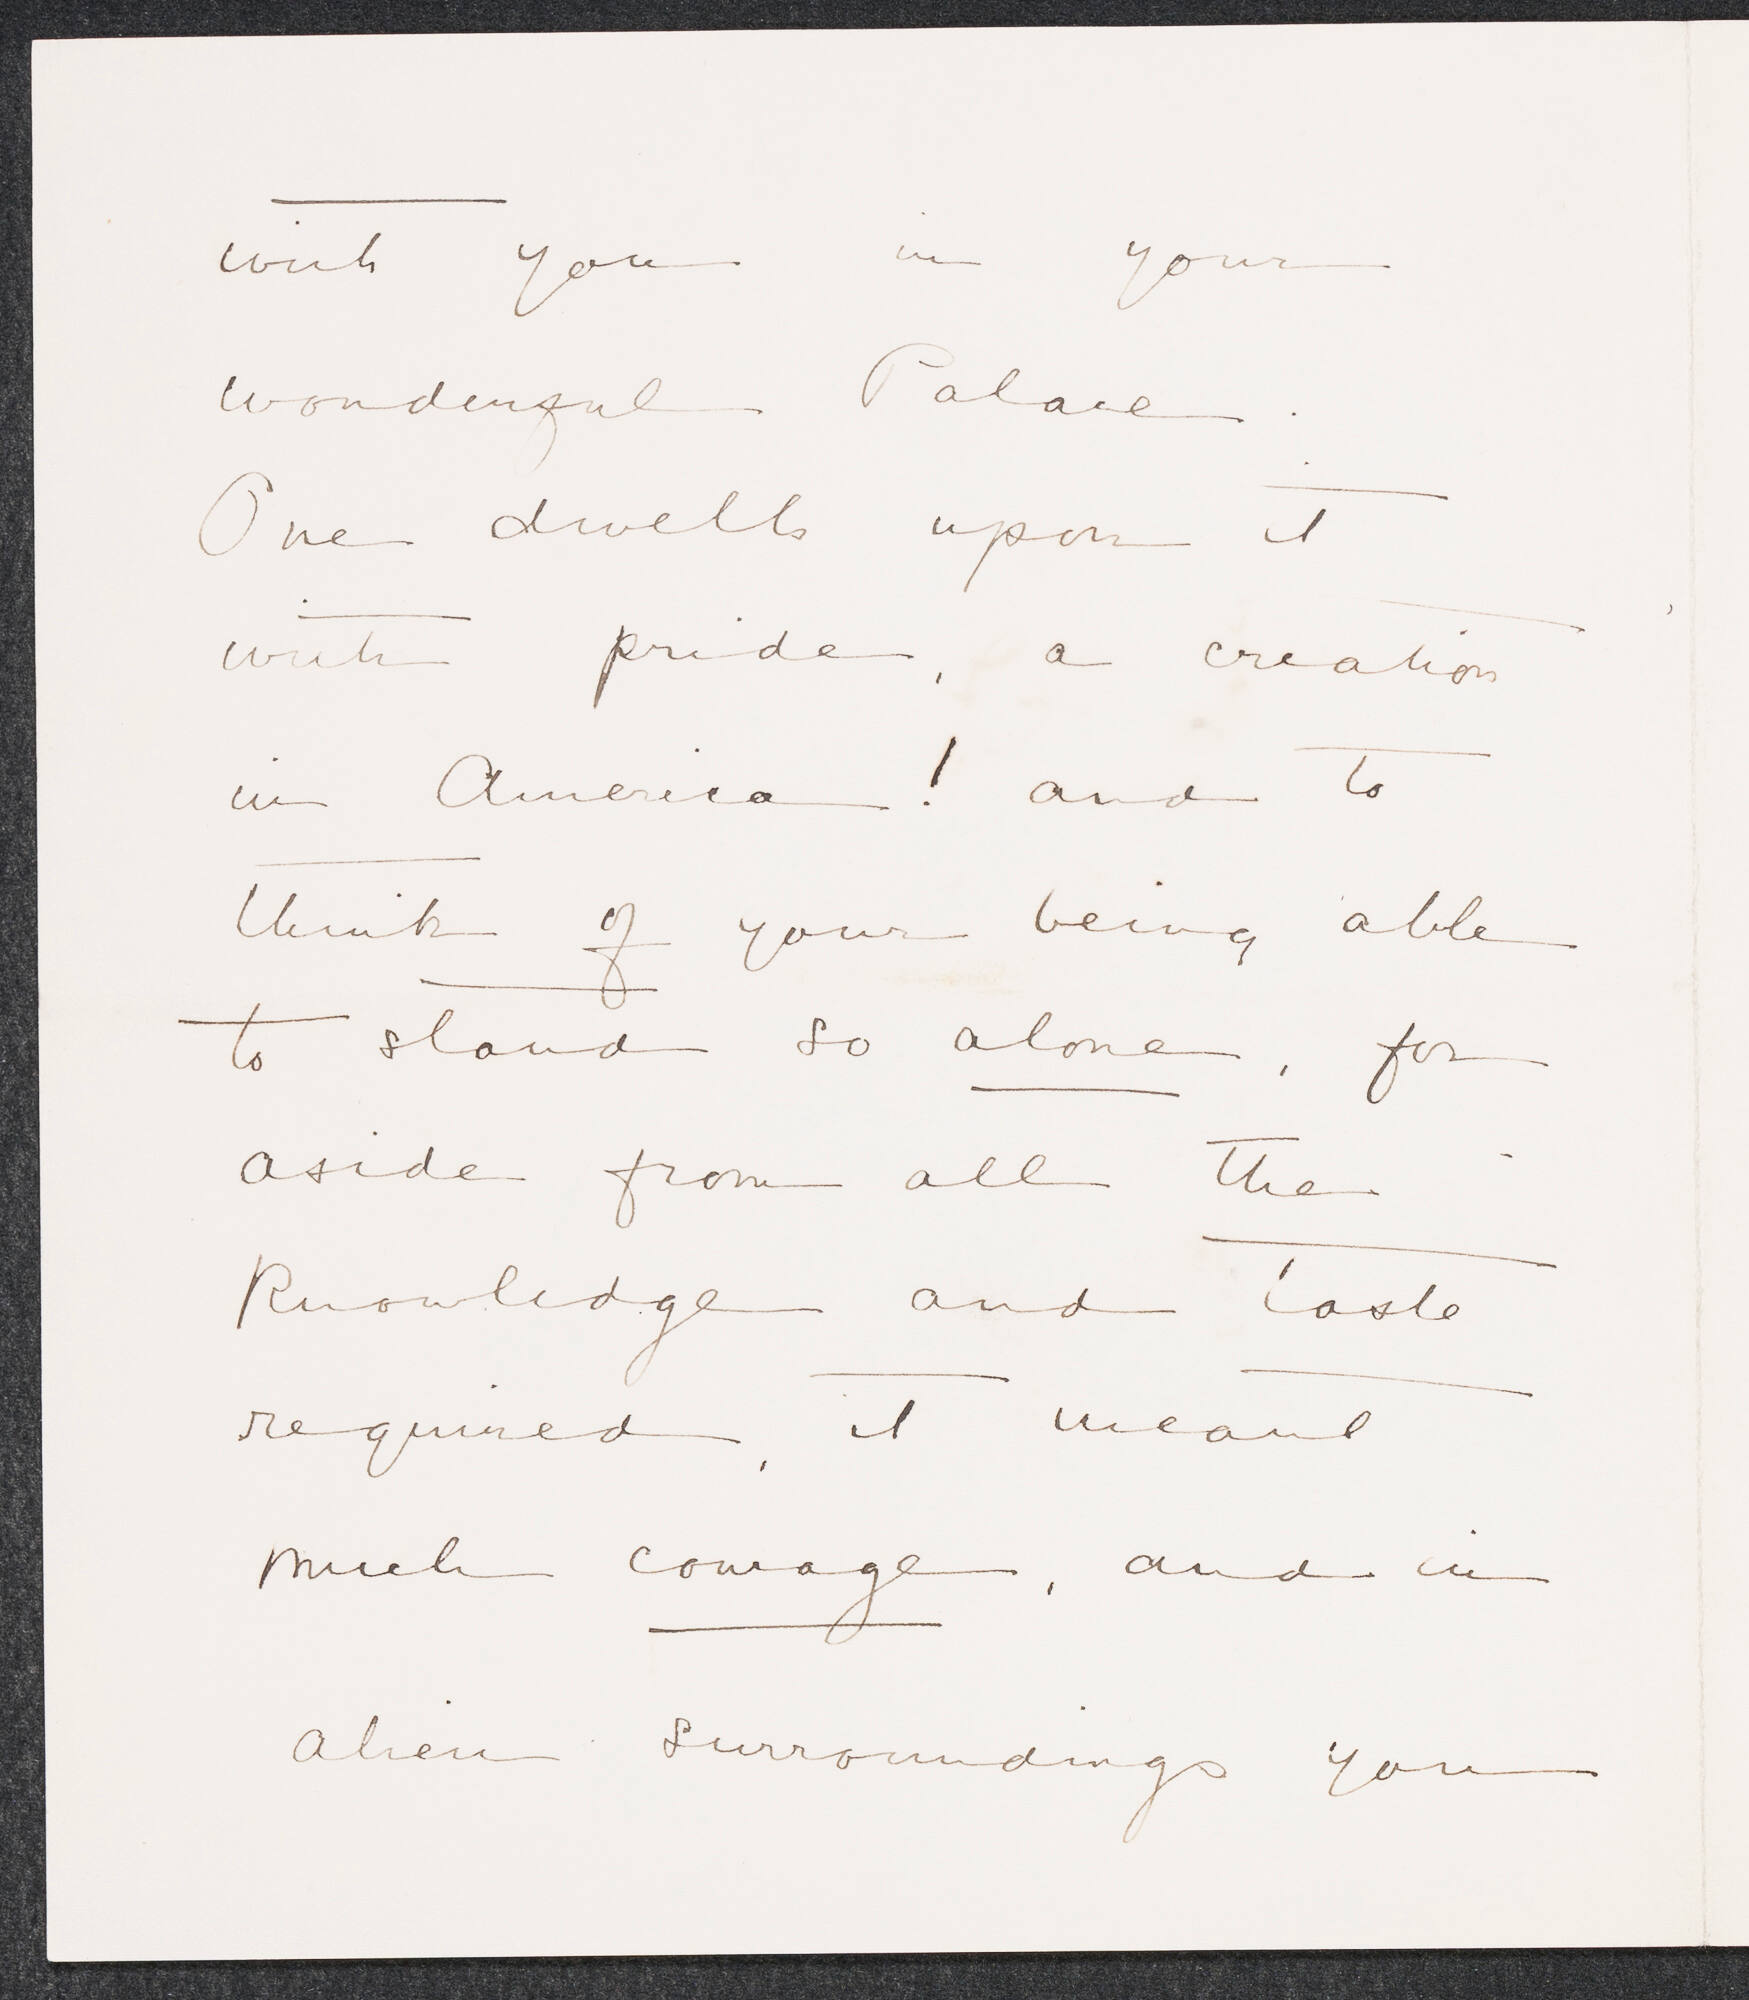 with you in your
wonderful Palace.
One dwells upon it
with pride, a creation
in America! and to
think of your being able
to stand so alone, for
aside from all the
Knowledge and taste
required, it meant
much courage, and in
alien surroundings you